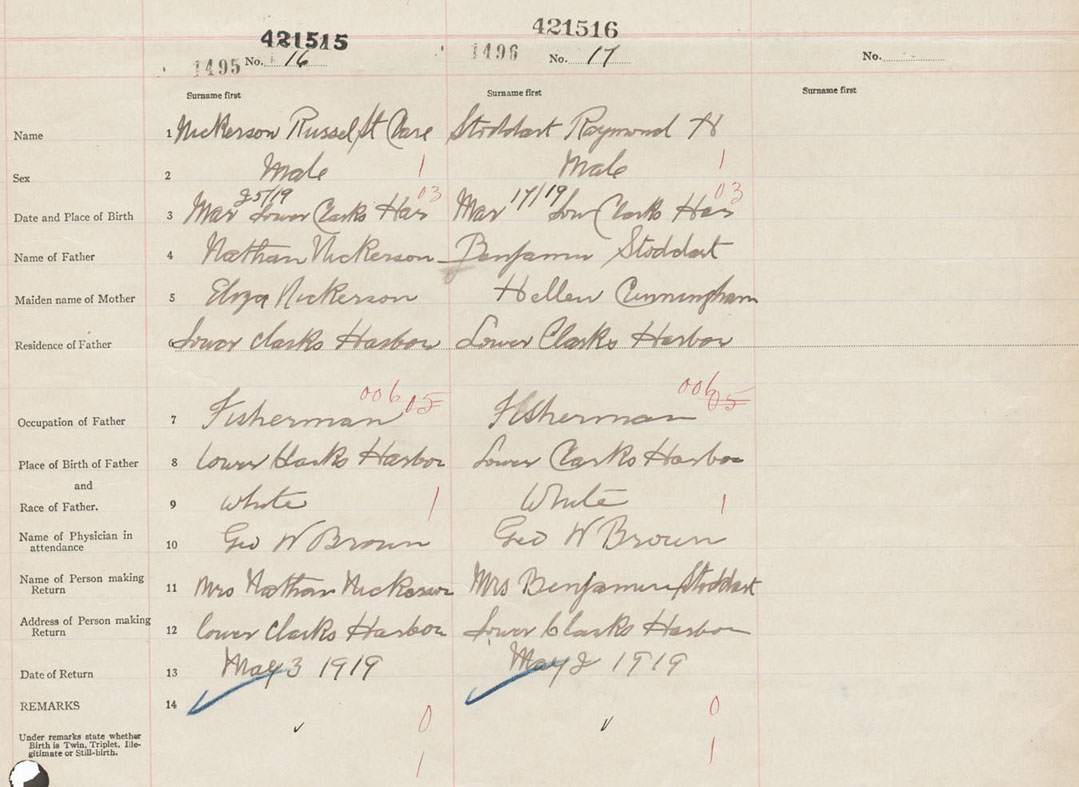 421515 421516
1495 No. 16 1496 No. 17 No.
Surname first Surname first Surname first
Name 1 Nickerson Russel St Clare Stoddart Raymond H
Sex 2 Male 1 Male 1
Date and Place of Birth 3 Mar 25/19 Lower Clarks Har 03 Mar 17/19 Low Clarks Har 03
Name of Father 4 Nathan Nickerson Benjamin Stoddart
Maiden name of Mother 5 Eliza Nickerson Hellen Cunningham
Residence of Father 6 Lower Clarks Harbor Lower Clarks Harbor
006 05 006 05
Occupation of Father 7 Fisherman Fisherman
Place of Birth of Father 8 Lower Clarks Harbor Lower Clarks Harbor
and
Race of Father. 9 White 1 White 1
Name of Physician in
attendance 10 Geo W Brown Geo W Brown
Name of Person making
Return 11 Mrs Nathan Nickerson Mrs Benjamin Stoddart
Address of Person making
Return 12 Lower Clarks Harbor Lower Clarks Harbor
Date of Return 13 May 3 1919 May 2 1919
REMARKS 14
0 0
Under remarks state whether
Birth is Twin, Triplet, Ille-
gitimate or Still-birth.
1 1